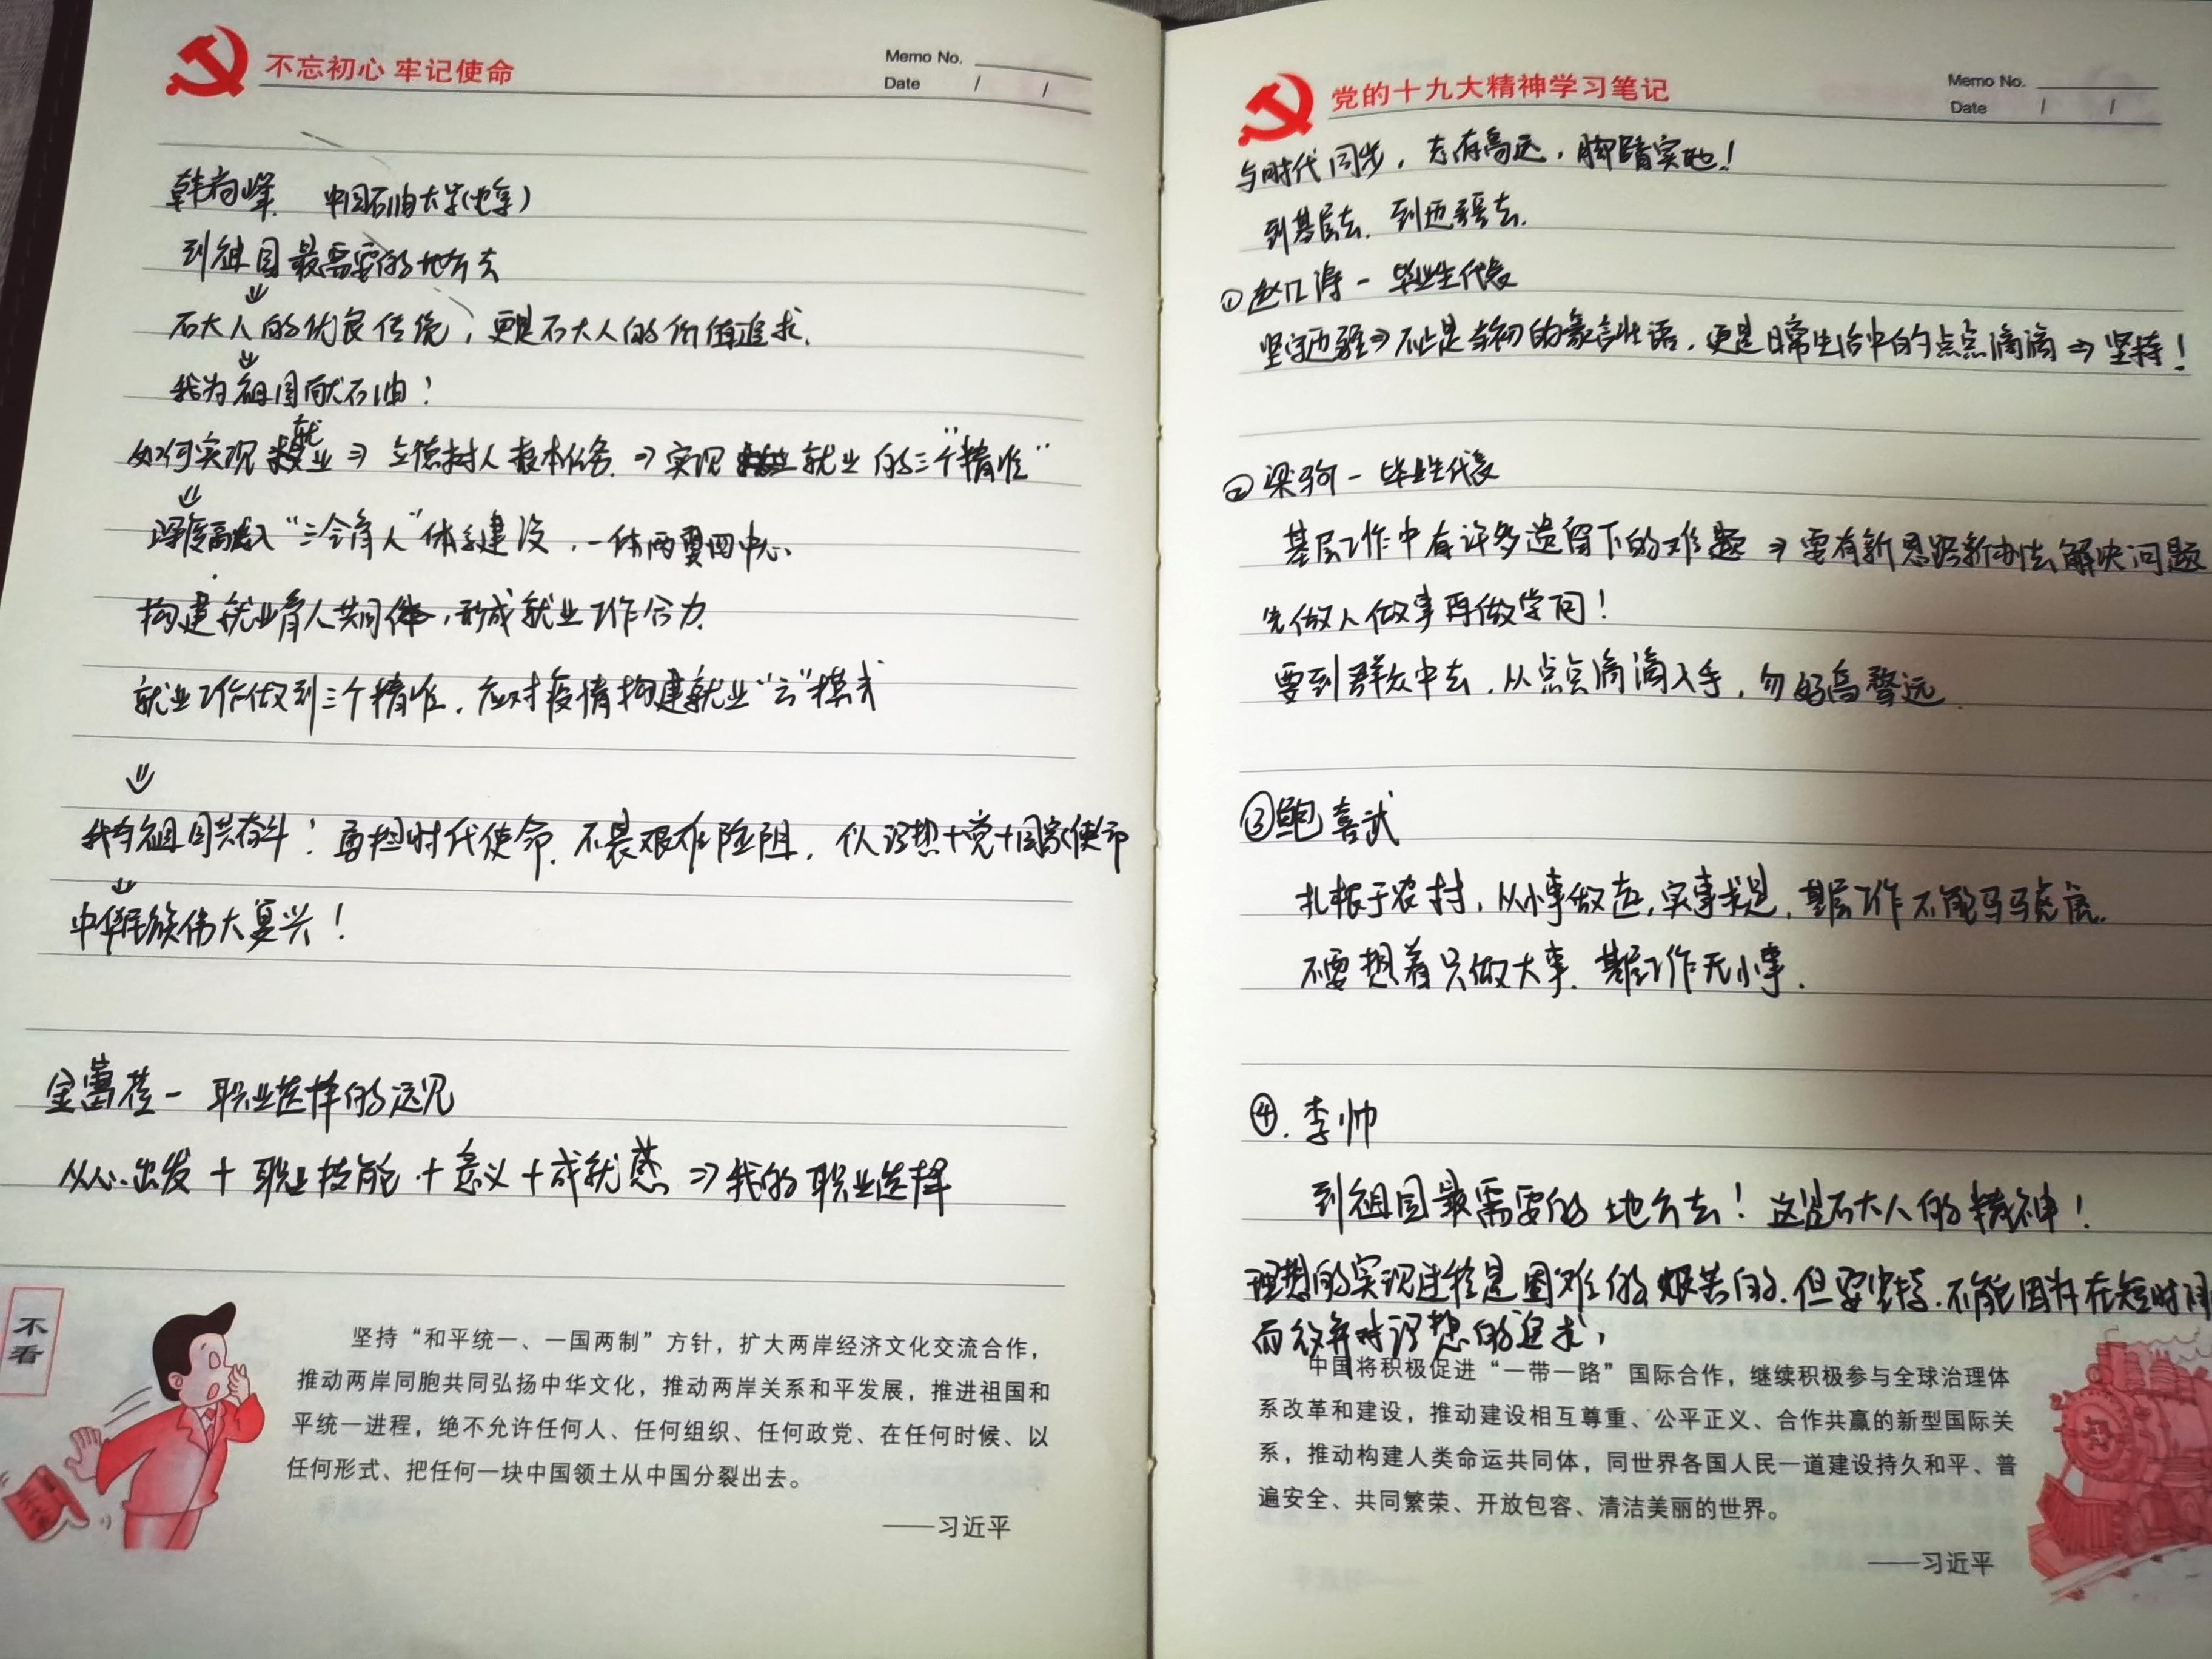 不忘初心 牢记使命
Memo No.
Date / /
韩尚峰 中国石油大学(北京)
到祖国最需要的地方去
⇓
石大人的优良传统，更是石大人的价值追求.
⇓
我为祖国献石油！
就
如何实现 业 ⇒ 立德树人根本任务. ⇒ 实现 就业的三个"精准"
⇓
深度融入"三全育人"体系建设，一体两翼四中心.
构建就业育人共同体，形成就业工作合力.
就业工作做到三个精准，应对疫情构建就业"云"模式
⇓
我与祖国共奋斗：勇担时代使命.不畏艰难险阻，个人理想+党+国家使命
⇓
中华民族伟大复兴！
金蕾莅－职业选择的远见
从心出发 + 职业技能 + 意义 + 成就感 ⇒ 我的职业选择
不看
坚持“和平统一、一国两制”方针，扩大两岸经济文化交流合作，
推动两岸同胞共同弘扬中华文化，推动两岸关系和平发展，推进祖国和
平统一进程，绝不允许任何人、任何组织、任何政党、在任何时候、以
任何形式、把任何一块中国领土从中国分裂出去。
——习近平
党的十九大精神学习笔记
Memo No.
Date / /
与时代同步，志存高远，脚踏实地！
到基层去.到边疆去.
① 赵 涛－毕业生代表
坚守边疆⇒不止是当初的豪言壮语，更是日常生活中的点点滴滴⇒坚持！
② 梁 －毕业生代表
基层工作中有许多遗留下的难题⇒要有新思路新办法解决问题
先做人做事再做学问！
要到群众中去，从点点滴滴入手，勿好高骛远.
③鲍喜武
扎根于农村，从小事做起，实事求是，基层工作不能马马虎虎.
不要想着只做大事.基层工作无小事.
④.李帅
到祖国最需要的地方去！这是石大人的精神！
理想的实现过程是困难的艰苦的.但要坚持.不能因为在短时间
而放弃对理想的追求，
中国将积极促进“一带一路”国际合作，继续积极参与全球治理体
系改革和建设，推动建设相互尊重、公平正义、合作共赢的新型国际关
系，推动构建人类命运共同体，同世界各国人民一道建设持久和平、普
遍安全、共同繁荣、开放包容、清洁美丽的世界。
——习近平